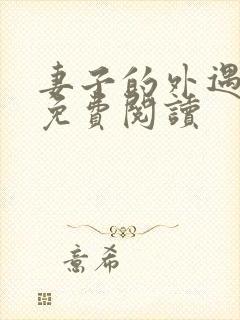 妻子的外遇
免費閱讀
意希